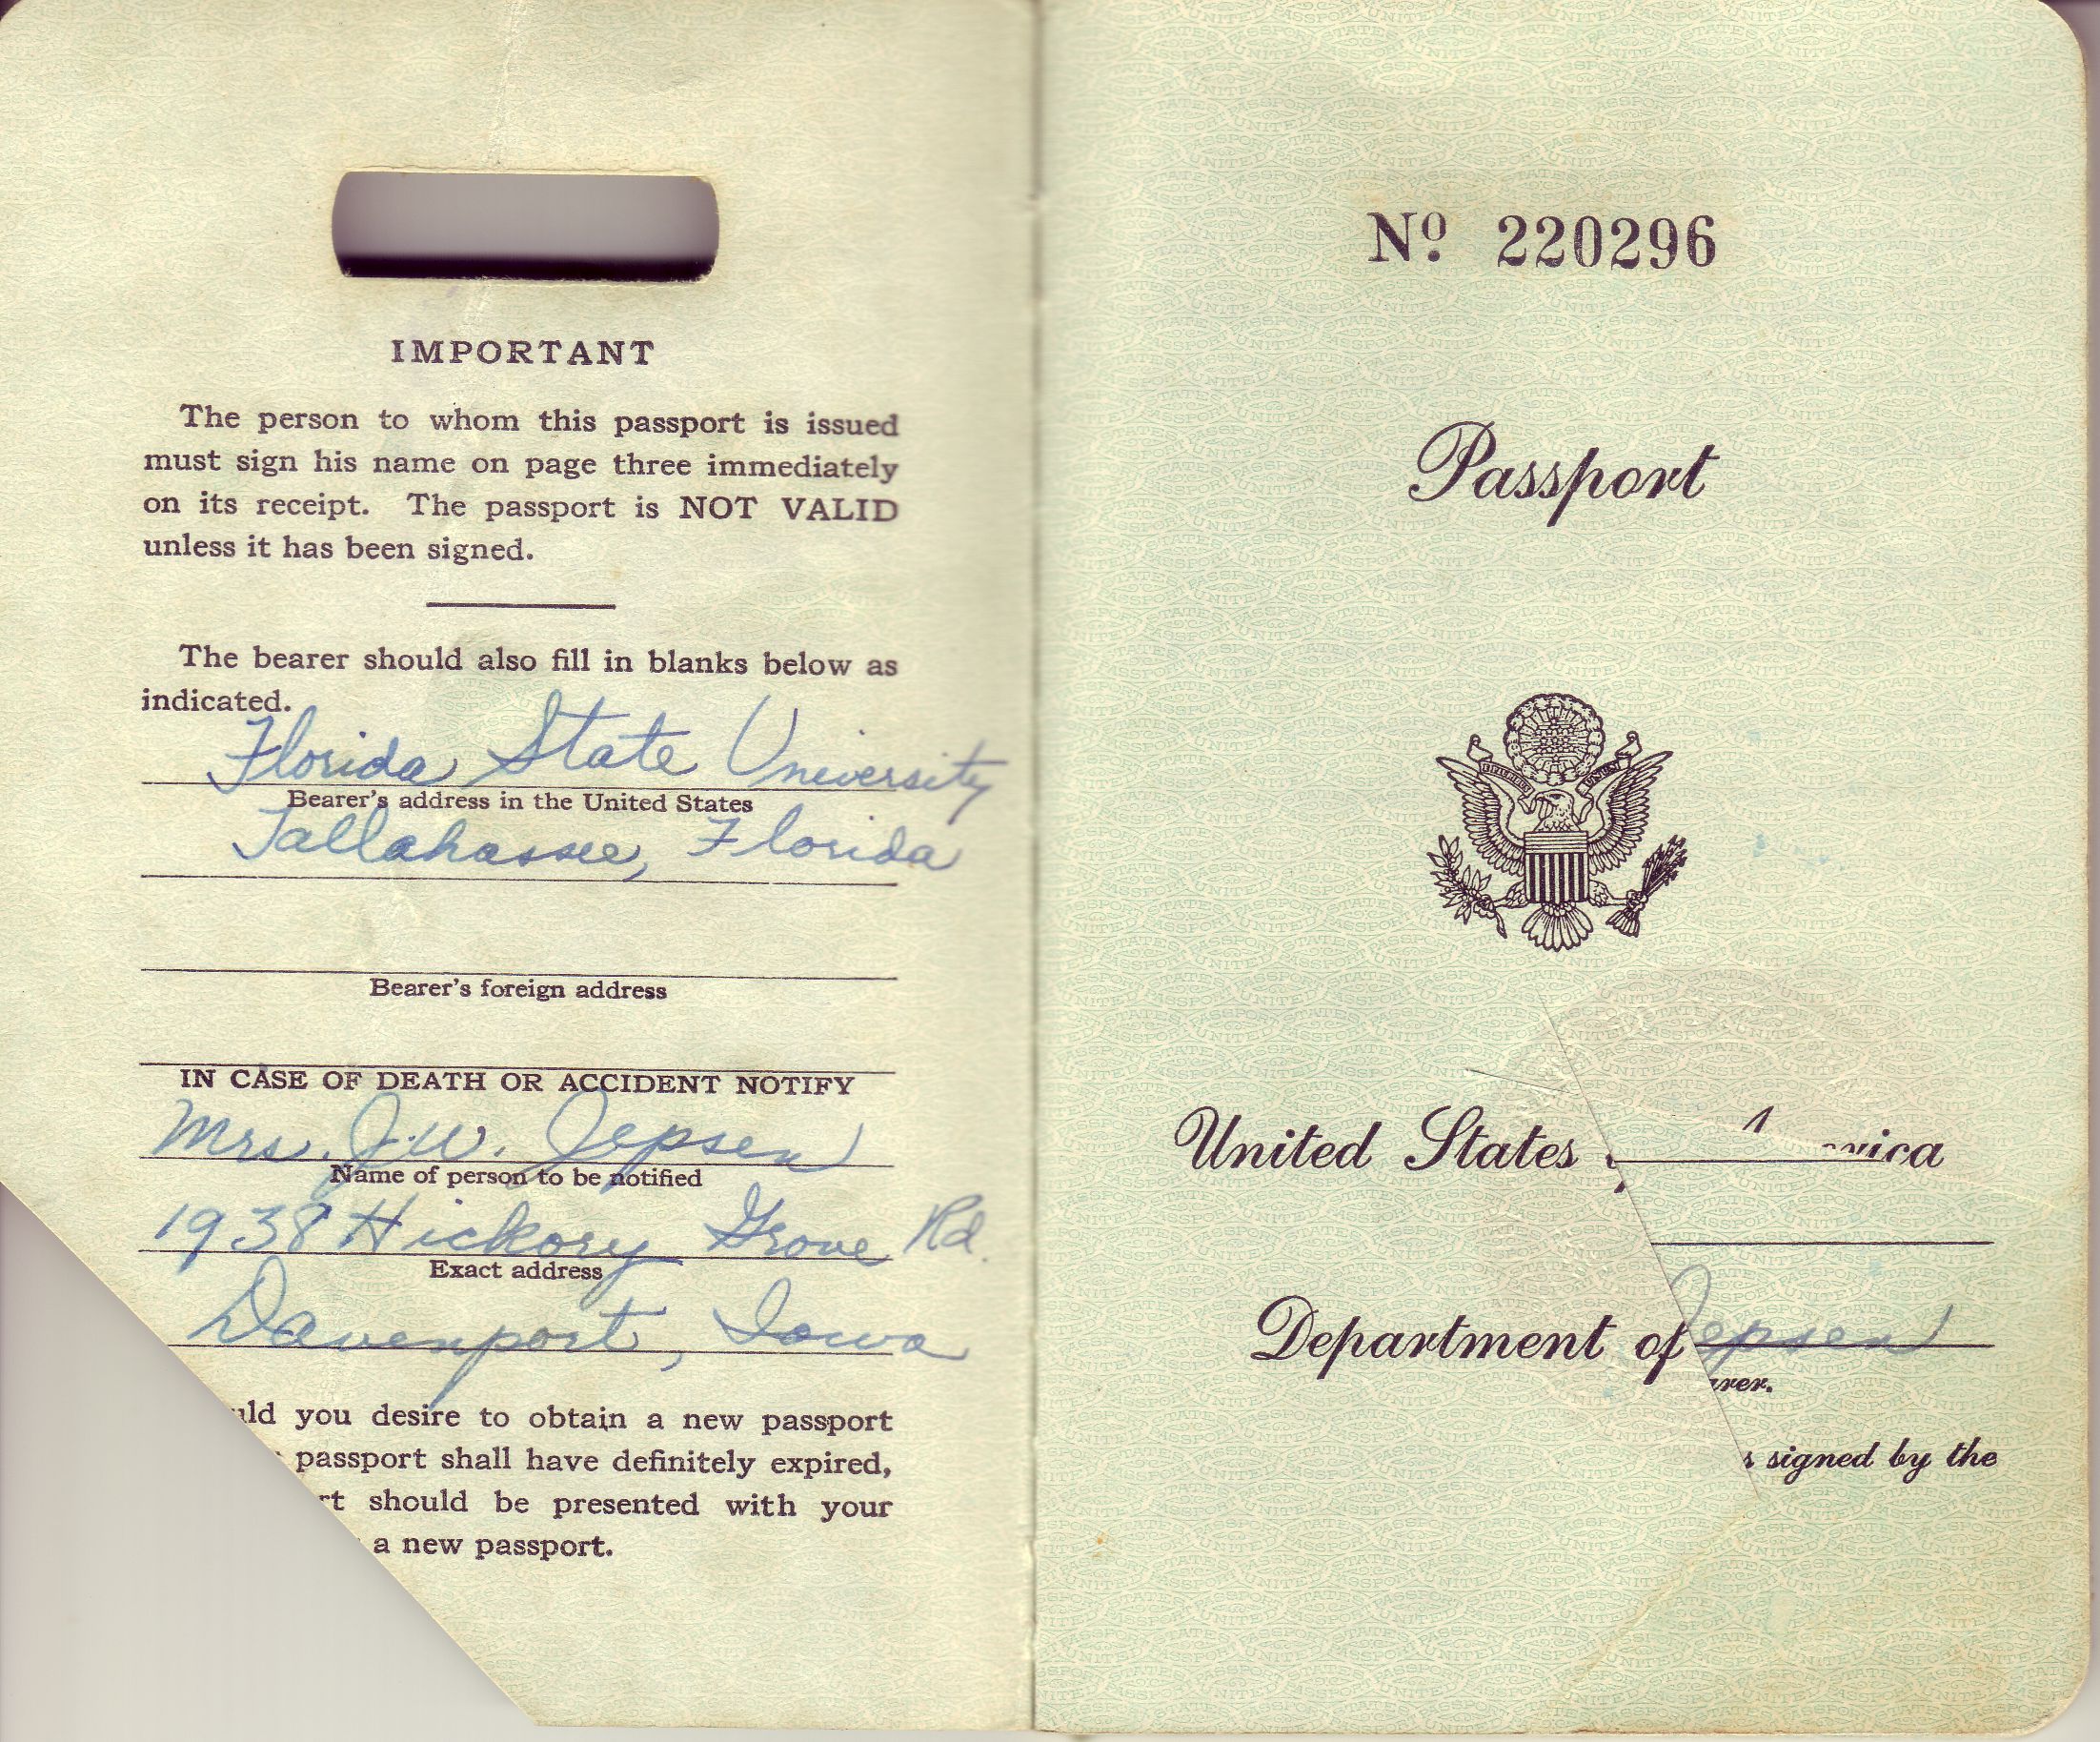 IMPORTANT
The person to whom this passport is issued
must sign his name on page three immediately
on its receipt. The passport is NOT VALID
unless it has been signed.
The bearer should also fill in blanks below as
indicated.
Florida State University
Bearer's address in the United States
Tallahassee, Florida
Bearer's foreign address
IN CASE OF DEATH OR ACCIDENT NOTIFY
Mrs. J.W. Jepsen
Name of person to be notified
1938 Hickory Grove Rd.
Exact address
Davenport, Iowa
you desire to obtain a new passport
passport shall have definitely expired,
should be presented with your
a new passport.
Nº 220296
Passport
United States
Department of Jepsen
signed by the